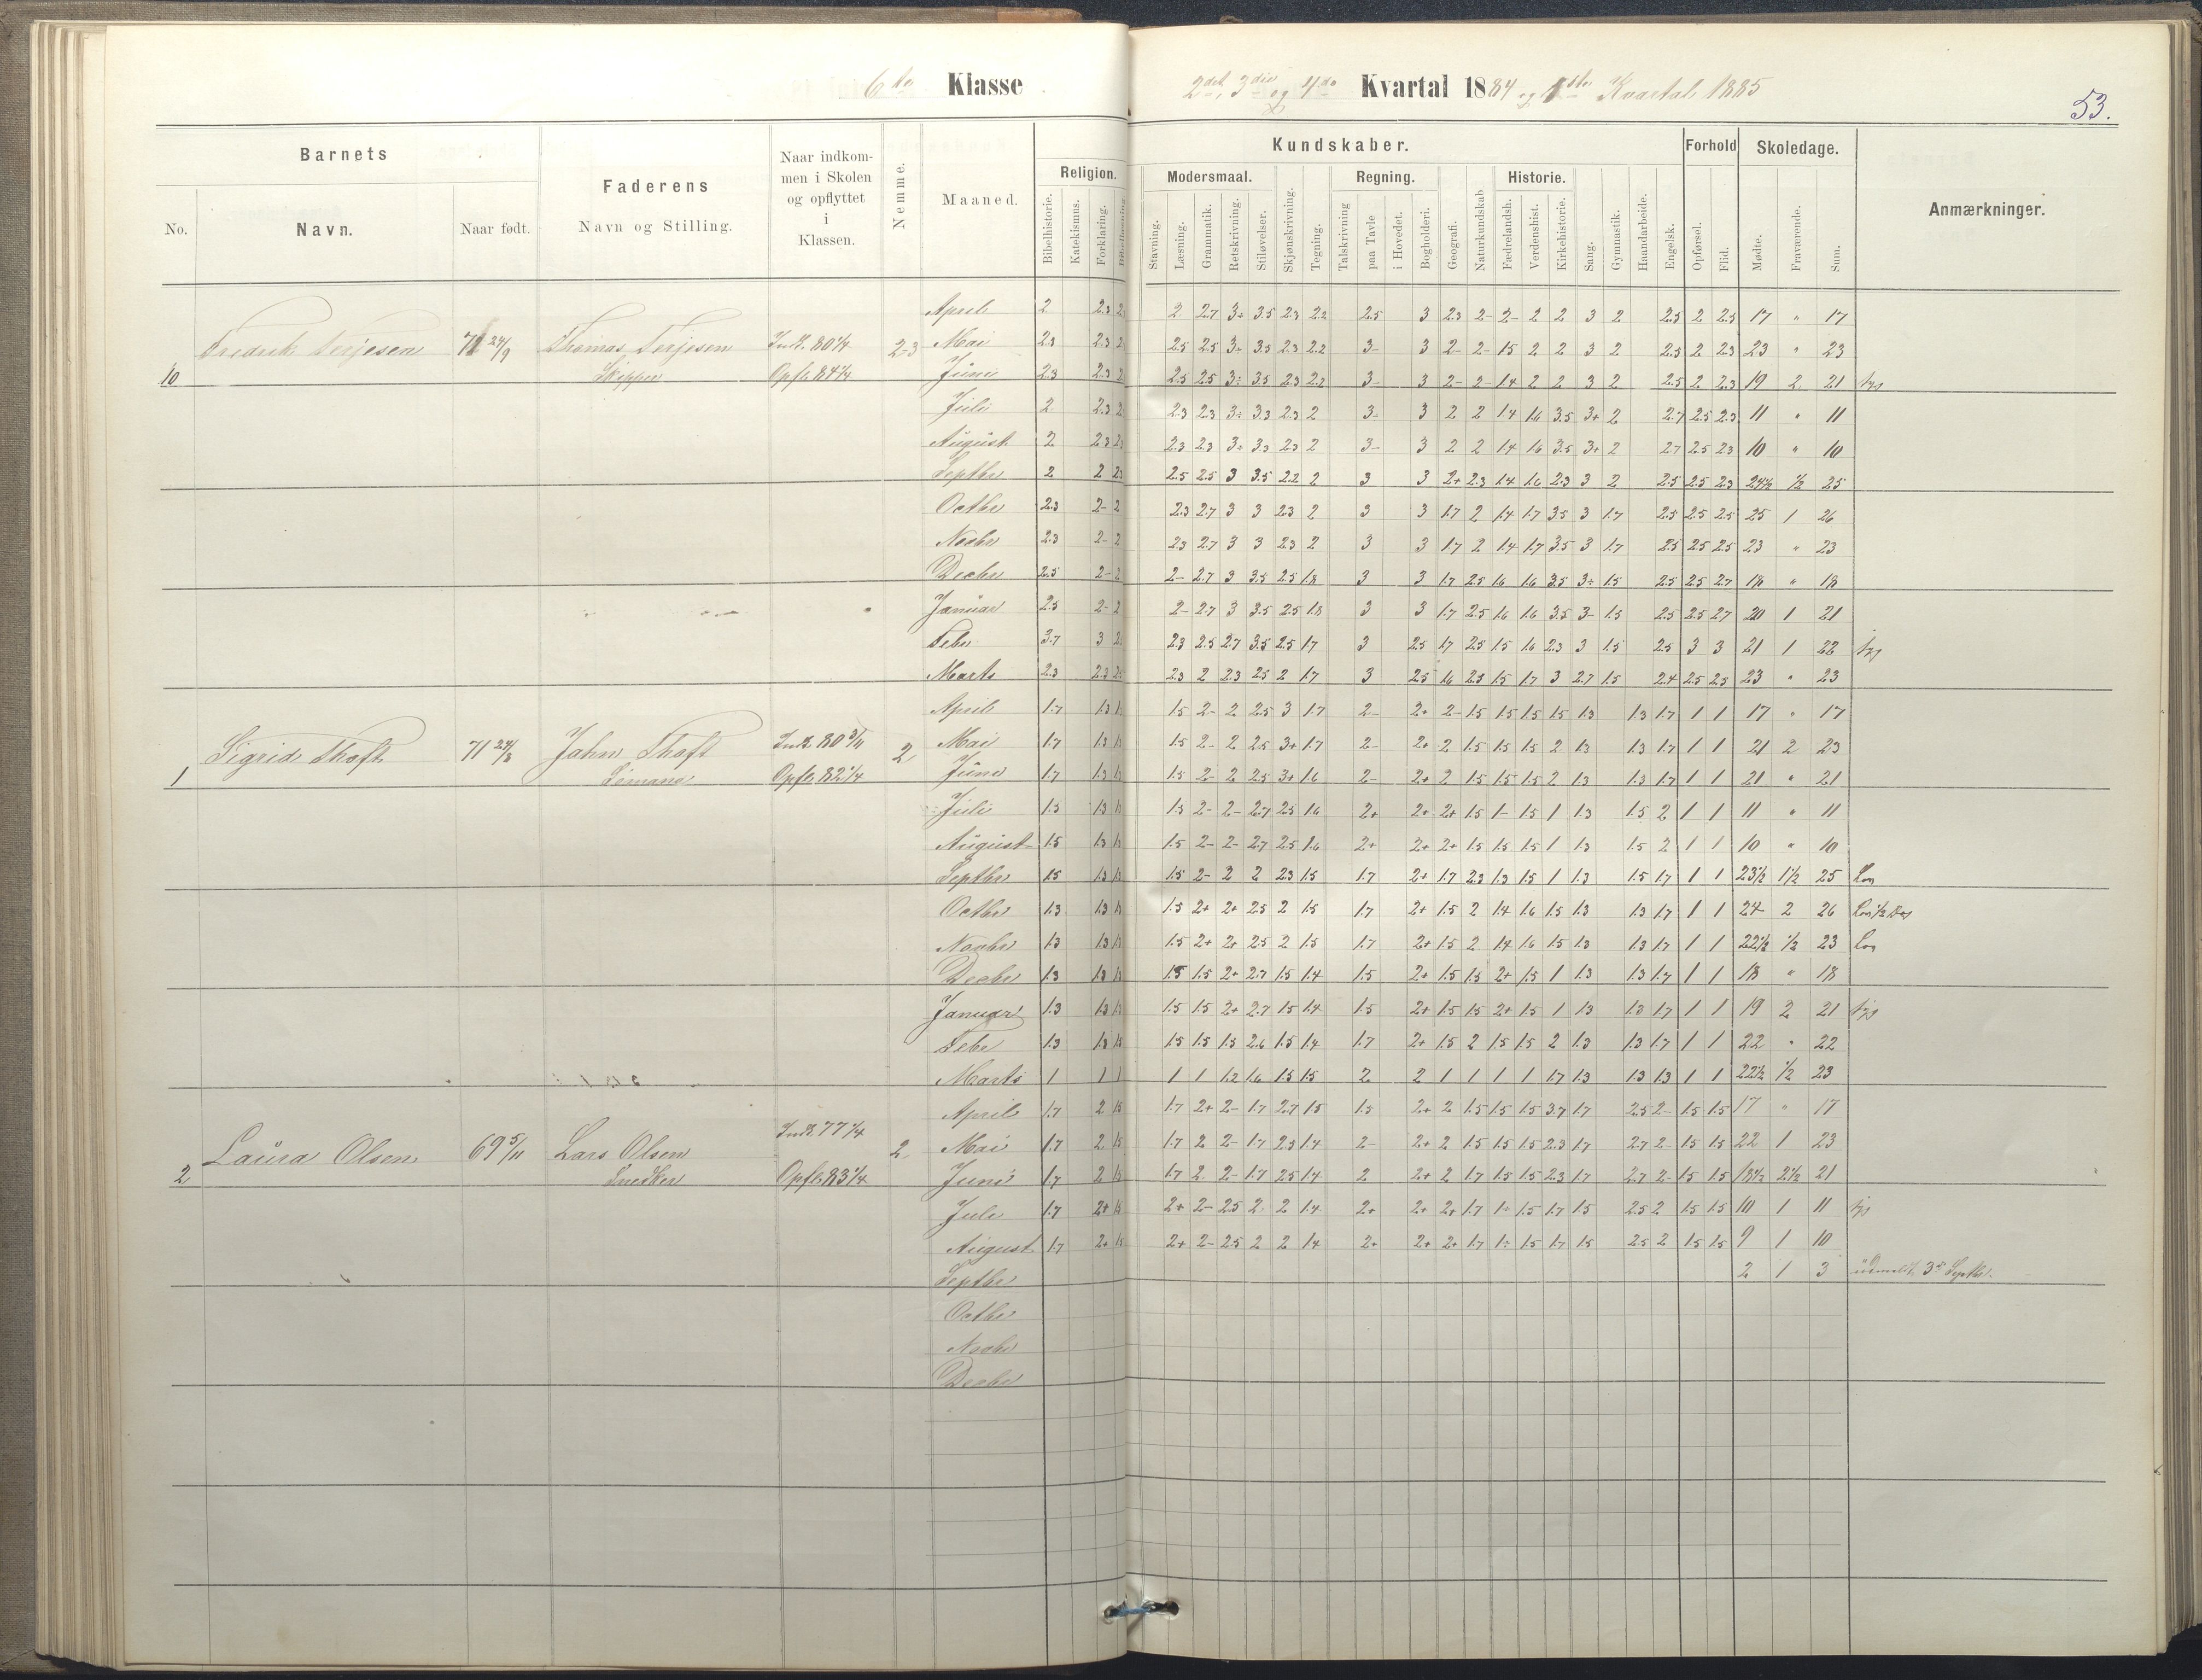 6te Klasse
2det, 3die og 4de Kvartal 1884 og 1ste Kvartal 1885
53.
Barnets
No.
Navn.
Naar født.
Faderens
Navn og Stilling.
Naar indkom-
men i Skolen
og opflyttet
i
Klassen.
Nemme.
Maaned.
Kundskaber.
Religion.
Bibelhistorie.
Katekismus.
Forklaring.
Modersmaal.
Stavning.
Læsning.
Grammatik.
Retskrivning.
Stiløvelser.
Skjønskrivning.
Tegning.
Regning.
Talskrivning
paa Tavle
i Hovedet.
Bogholderi.
Geografi.
Naturkundskab
Historie.
Fædrelandsh.
Verdenshist.
Kirkehistorie.
Sang.
Gymnastik.
Haandarbeide.
Engelsk.
Forhold
Opførsel.
Flid.
Skoledage.
Mødte.
Fraværende.
Sum.
Anmærkninger.
10 Fredrik Terjesen 71 24/9 Thomas Terjesen Skipper Indk. 80 1/4 Opfl. 84 1/4 2-3
April 2 2.3 2 2.7 3+ 3.5 2.3 2.2 2.5 3 2.3 2- 2- 2 2 3 2 2.5 2 2.5 17 " 17
Mai 2.3 2.3 2.5 2.5 3+ 3.5 2.3 2.2 3- 3 2- 2- 1.5 2 2 3 2 2.5 2 2.3 23 " 23
Juni 2.3 2.3 2.5 2.5 3÷ 3.5 2.3 2.2 3- 3 2- 2- 1.4 2 2 3 2 2.5 2 2.3 19 2 21
Juli 2 2.3 2.3 2.3 3÷ 3.3 2.3 2 3- 3 2 2 1.4 1.6 3.5 3+ 2 2.7 2.5 2.3 11 " 11
August 2 2.3 2.3 2.3 3÷ 3.3 2.3 2 3- 3 2 2 1.4 1.6 3.5 3+ 2 2.7 2.5 2.3 10 " 10
Septbr 2 2 2.5 2.5 3 3.5 2.2 2 3 3 2+ 2.3 1.4 1.6 2.3 3 2 2.5 2.5 2.3 24 1/2 1/2 25
Octbr 2.3 2- 2 2.3 2.7 3 3 2.3 2 3 3 1.7 2 1.4 1.7 3.5 3 1.7 2.5 2.5 2.5 25 1 26
Novbr 2.3 2- 2 2.3 2.7 3 3 2.3 2 3 3 1.7 2 1.4 1.7 3.5 3 1.7 2.5 2.5 2.5 23 " 23
Decbr 2.5 2- 2 2- 2.7 3 3.5 2.5 1.8 3 3 1.7 2.5 1.6 1.6 3.5 3÷ 1.5 2.5 2.5 2.7 18 " 18
Januar 2.5 2- 2 2- 2.7 3 3.5 2.5 1.8 3 3 1.7 2.5 1.6 1.6 3.5 3- 1.5 2.5 2.5 2.7 20 1 21
Febr 3.7 3 2.3 2.5 2.7 3.5 2.5 1.7 3 2.5 1.7 2.5 1.5 1.6 2.3 3 1.5 2.5 3 3 21 1 22
Marts 2.3 2.3 2.3 2 2.3 2.5 2 1.7 3 2.5 1.6 2.3 1.5 1.7 3 2.7 1.5 2.4 2.5 2.5 23 " 23
1 Sigrid Thoft 71 24/8 John Thoft Sømand Indk. 80 3/11 Opfl. 82 1/4 2
April 1.7 1.3 1.5 2- 2 2.5 3 1.7 2- 2+ 2- 1.5 1.5 1.5 1.5 1.3 1.3 1.7 1 1 17 " 17
Mai 1.7 1.3 1.5 2- 2 2.5 3+ 1.7 2- 2+ 2 1.5 1.5 1.5 2 1.3 1.3 1.7 1 1 21 2 23
Juni 1.7 1.3 1.5 2- 2 2.5 3+ 1.6 2- 2+ 2 1.5 1.5 1.5 2 1.3 1.3 1.7 1 1 21 " 21
Juli 1.5 1.3 1.5 2- 2- 2.7 2.5 1.6 2+ 2+ 2+ 1.5 1- 1.5 1 1.3 1.5 2 1 1 11 " 11
August 1.5 1.3 1.5 2- 2- 2.7 2.5 1.6 2+ 2+ 2+ 1.5 1.5 1.5 1 1.3 1.5 2 1 1 10 " 10
Septbr 1.5 1.3 1.5 2- 2 2 2.3 1.5 1.7 2+ 1.7 2.3 1.3 1.5 1 1.3 1.5 1.7 1 1 23 1/2 1 1/2 25
Octbr 1.3 1.3 1.5 2+ 2+ 2.5 2 1.5 1.7 2+ 1.5 2 1.4 1.6 1.5 1.3 1.3 1.7 1 1 24 2 26
Novbr 1.3 1.3 1.5 2+ 2+ 2.5 2 1.5 1.7 2+ 1.5 2 1.4 1.6 1.5 1.3 1.3 1.7 1 1 22 1/2 1/2 23
Decbr 1.3 1.3 1.5 1.5 2+ 2.7 1.5 1.4 1.5 2+ 1.5 1.5 2+ 1.5 1 1.3 1.3 1.7 1 1 18 " 18
Januar 1.3 1.3 1.5 1.5 2+ 2.7 1.5 1.4 1.5 2+ 1.5 1.5 2+ 1.5 1 1.3 1.3 1.7 1 1 19 2 21
Febr 1.3 1.3 1.5 1.5 1.5 2.6 1.5 1.4 1.7 2+ 1.5 2 1.5 1.5 2 1.3 1.3 1.7 1 1 22 " 22
Marts 1 1 1 1 1 1.2 1.6 1.5 1.5 2 2 1 1 1 1 1.7 1.3 1.3 1.3 1 1 22 1/2 1/2 23
2 Laura Olsen 69 5/11 Lars Olsen Snedker Indk. 77 1/4 Opfl. 83 1/4 2
April 1.7 2 1.5 1.7 2+ 2- 1.7 2.7 1.5 1.5 2+ 2 1.5 1.5 1.5 3.7 1.7 2.5 2- 1.5 1.5 17 " 17
Mai 1.7 2 1.5 1.7 2 2- 1.7 2.5 1.4 2- 2+ 2 1.5 1.5 1.5 2.3 1.7 2.7 2- 1.5 1.5 22 1 23
Juni 1.7 2 1.5 1.7 2 2- 1.7 2.5 1.4 2 2+ 2 1.7 1.5 1.5 2.3 1.7 2.7 2- 1.5 1.5 18 1/2 2 1/2 21
Juli 1.7 2+ 1.5 2+ 2- 2.5 2 2 1.4 2+ 2+ 2+ 1.7 1÷ 1.5 1.7 1.5 2.5 2 1.5 1.5 10 1 11
August 1.7 2+ 1.5 2+ 2- 2.5 2 2 1.4 2+ 2+ 2+ 1.7 1÷ 1.5 1.7 1.5 2.5 2 1.5 1.5 9 1 10
Septbr 2 1 3 udmeldt 3d Septbr.
Octbr
Novbr
Decbr